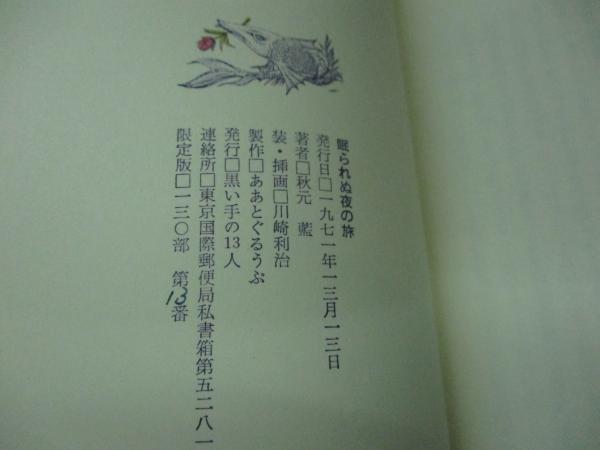 眠られぬ夜の旅
発行日□一九七一年一三月一三日
著者□秋元　藍
装・挿画□川崎利治
製作□ああとぐるうぷ
発行□黒い手の13人
連絡所□東京国際郵便局私書箱第五二八一
限定版□一三〇部　第13番